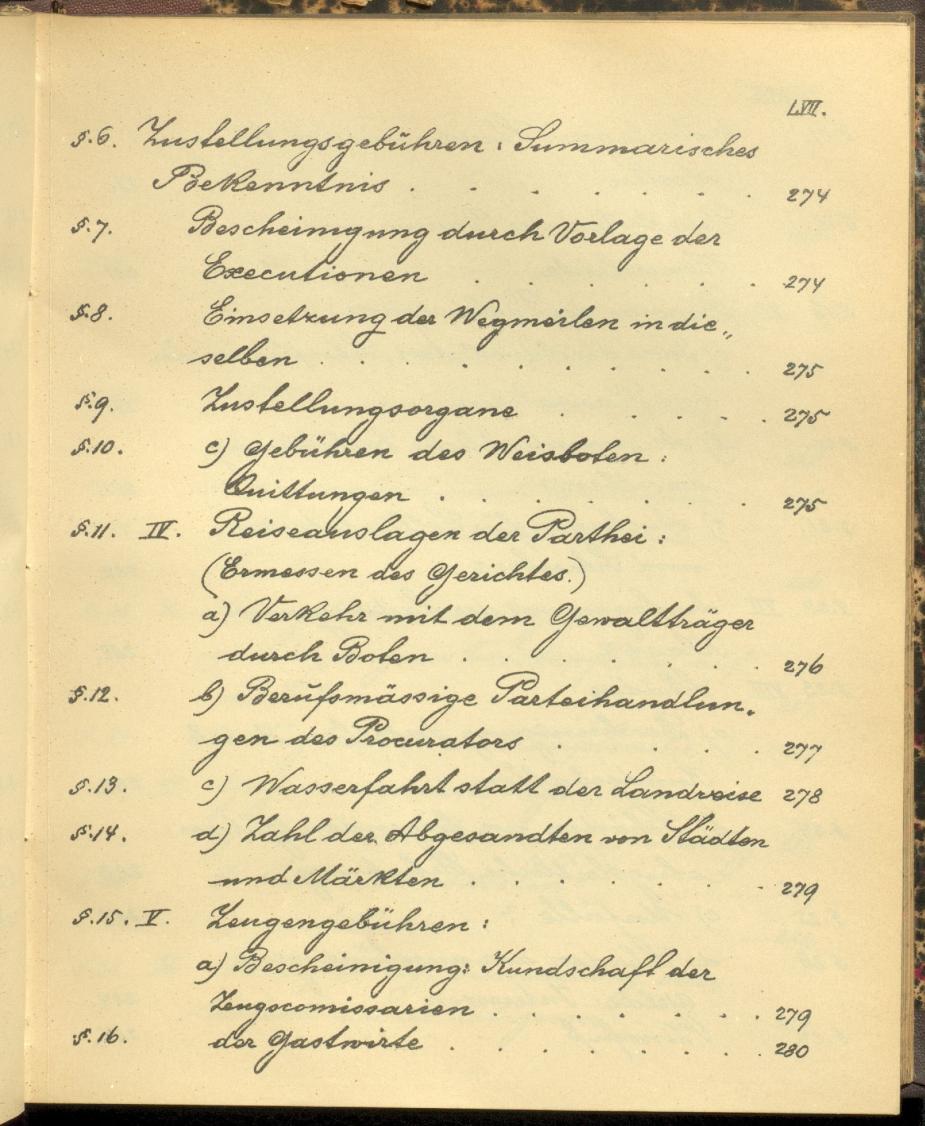 LVII.
§.6. Zustellungsgebühren: Summarisches
Bekenntnis . . . . . . . 274
§.7. Bescheinigung durch Vorlage der
Executionen . . . . . . 274
§.8. Einsetzung der Wegmeilen in die„
selben . . . . . . . . 275
§.9. Zustellungsorgane . . . . . 275
§.10. c) Gebühren des Weisboten:
Quittungen . . . . . . 275
§.11. IV. Reiseauslagen der Parthei:
(Ermessen des Gerichtes.)
a) Verkehr mit dem Gewaltträger
durch Boten . . . . . . 276
§.12. b) Berufsmässige Parteihandlun„
gen des Procurators . . . . 277
§.13. c) Wasserfahrt statt der Landreise 278
§.14. d) Zahl der Abgesandten von Städten
und Märkten . . . . . . 279
§.15. V. Zeugengebühren:
a) Bescheinigung: Kundschaft der
Zeugscomissarien . . . . . . 279
§.16. der Gastwirte . . . . . . 280